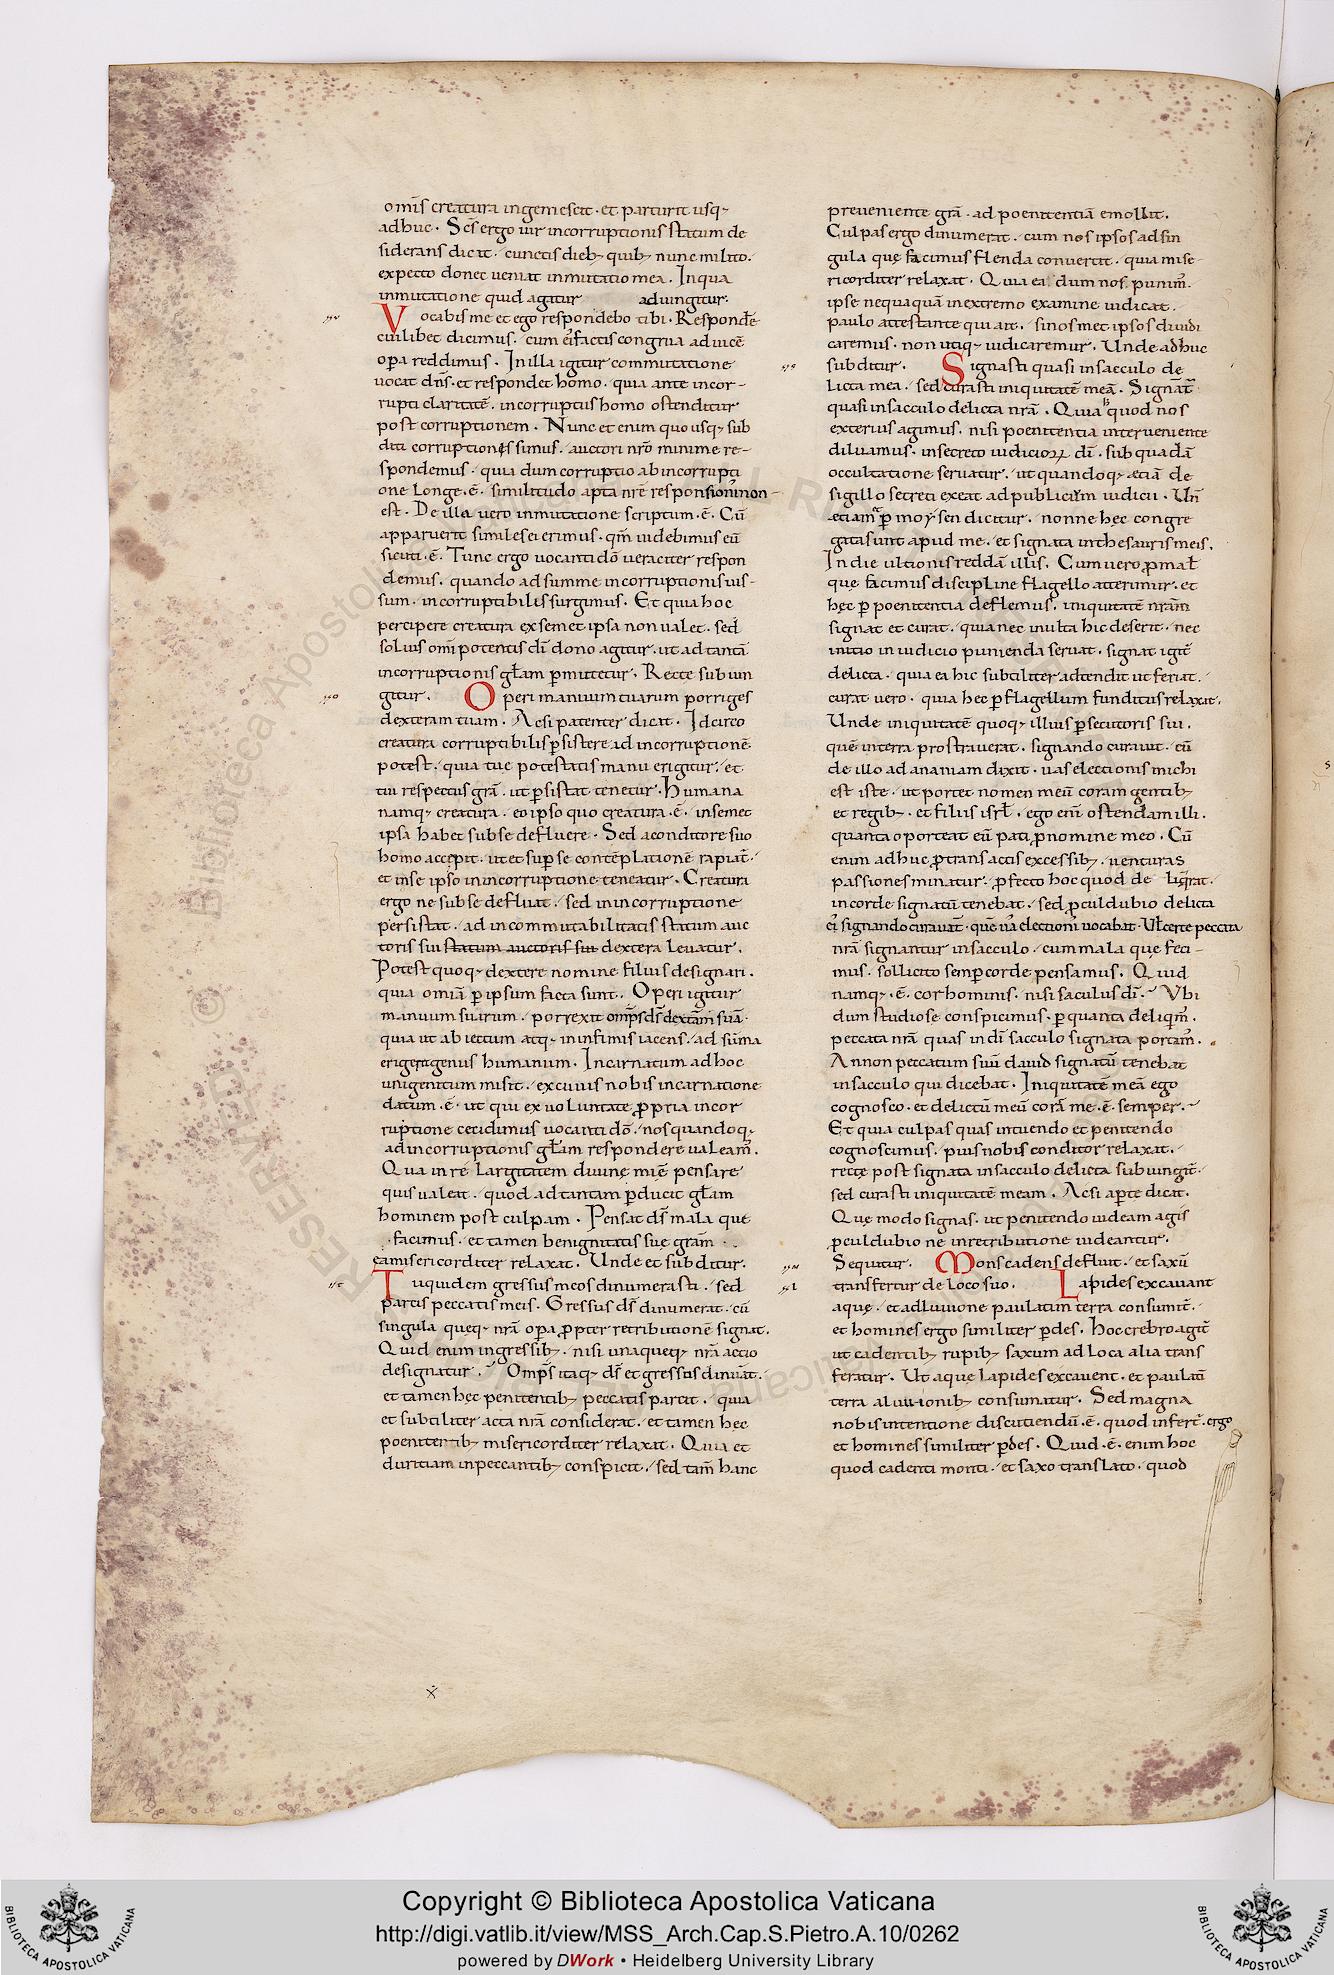 omīs creatura ingemescit · et parturit usq;
adhuc · Sc̄s ergo uir incorruptionis statum de
siderans dicit · cunctis dieb; quib; nunc milito ·
expecto donec ueniat inmutatio mea · In qua
inmutatione quid agitur adiungitur ·
Vocabis me et ego respondebo tibi · Respondē
cuilibet dicimus · cum ei factis congrua ad uicē
opa reddimus · In illa igitur commutatione
uocat dn̄s · et respondet homo · quia ante incor-
rupti claritatē · incorruptus homo ostenditur
post corruptionem · Nunc et enim quousq; sub
diti corruptionis simus · auctori nr̄o minime re-
spondemus · quia dum corruptio ab incorrupti
one longe · ē · similitudo apta nrē responsioni non
est · De illa uero inmutatione scriptum · ē · Cū
apparuerit similes ei erimus · qm̄ uidebimus eū
sicuti · ē · Tunc ergo uocanti dō ueraciter respon
demus · quando ad summe incorruptionis ius-
sum · incorruptibiles surgimus · Et quia hoc
percipere creatura ex semet ipsa non ualet · sed
solius omi potentis dī dono agitur · ut ad tantā
incorruptionis głam pmutetur · Recte subiun
gitur · Operi manuum tuarum porriges
dexteram tuam · Ac si patenter dicat · Idcirco
creatura corruptibilis psistere ad incorruptionē
potest · quia tue potestatis manu erigitur · et
tui respectus grā · ut psistat tenetur · Humana
namq; creatura · eo ipso quo creatura · ē · in semet
ipsa habet sub se defluere · Sed a conditore suo
homo accepit · ut et sup se contēplatione rapiat ·
et in se ipso in incorruptione teneatur · Creatura
ergo ne sub se defluat · sed in incorruptione
persistat · ad incommutabilitatis statum auc
toris sui statum auctoris sui dextera leuatur ·
Potest quoq; dextere nomine filius designari ·
quia omiā p ipsum facta sunt · Operi igitur
manuum suarum · porrexit omps ds dextam suā ·
quia ut abiectum atq; in infimis iacens · ad sūma
erigeret genus humanum · Incarnatum ad hoc
unigenitum misit · ex cuius nobis incarnatione
datum · ē · ut qui ex uoluntate propria incor
ruptione cecidimus uocanti dō · nos quandoq;
ad incorruptionis głam respondere ualeam̄ ·
Qua in re largitatem diuinę mię pensare
quis ualeat · quod ad tantam pducit głam
hominem post culpam · Pensat ds̄ mala quę
facimus · et tamen benignitatis suę gram ·
ea misericorditer relaxat · Unde et subditur ·
Tu quidem gressus meos dinumerasti · sed
parcis peccatis meis · Gressus ds̄ dinumerat · cū
singula queq; nrā opa propter retributionē signat ·
Quid enim in gressib; · nisi unaqueq; nrā actio
designatur · Omps itaq; ds̄ et gressus dinūat ·
et tamen hęc penitentib; peccatis parcit · quia
et subtiliter acta nrā considerat · et tamen hęc
poenitentib; misericorditer relaxat · Quia et
duritiam in peccantib; conspicit · sed tam̄ hanc
preueniente grā · ad poenitentiā emollit ·
Culpas ergo dinumerat · cum nos ipsos ad sin
gula quę facimus flenda conuertit · quia mise-
ricorditer relaxat · Quia ea dum nos punim̄ ·
ipse nequaquā in extremo examine iudicat ·
paulo attestante qui ait · si nosmet ipsos diiudi
caremus · non utiq; iudicaremur · Unde adhuc
subditur · Signasti quasi in sacculo de
licta mea · sed curasti iniquitatē meā · Signat̄
quasi in sacculo delicta nrā · Quia hoc quod nos
exterius agimus · nisi poenitentia interueniente
diluamus · in secreto iudicioꝝ dī · sub quadā
occultatione seruatur · ut quandoq; etiā de
sigillo secreti exeat ad publicum iudicii · Un̄
etiam p moysen dicitur · nonne hęc congre
gata sunt apud me · et signata in thesauris meis ·
In die ultionis reddā illis · Cum uero p mał
quę facimus discipline flagello atterimur · et
hęc p poenitentia deflemus · iniquitatē nrām
signat et curat · quia nec inulta hic deserit · nec
initio in iudicio punienda seruat · signat igit̄
delicta · quia ea hic subtiliter adtendit ut feriat ·
curat uero · quia hęc p flagellum funditus relaxat ·
Unde iniquitatē quoq; illius psecutoris sui ·
quē in terra prostrauerat · signando curauit · cū
de illo ad ananiam dixit · uas electionis michi
est iste · ut portet nomen meū coram gentib;
et regib; · et filiis isrł · ego enī ostendam illi ·
quanta oporteat eū pati p nomine meo · Cū
enim adhuc p transactis excessib; · uenturas
passiones minatur · pfecto hoc quod de liqrat ·
in corde signatū tenebat · sed proculdubio delicta
ei signando curauat · quē uā electionī uocabat · Uł certe peccata
nrā signantur in sacculo · cum mala quę feci-
mus · sollicito semp corde pensamus · Quid
namq; · ē · cor hominis · nisi saculus dī · Vbi
dum studiose conspicimus · p quanta deliqm̄ ·
peccata nrā quasi in dī sacculo signata portam̄ ·
An non peccatum suū dauid signatū tenebat
in sacculo qui dicebat · Iniquitatē meā ego
cognosco · et delictū meū corā me · ē · semper ·
Et quia culpas quas intuendo et penitendo
cognoscimus · pius nobis conditor relaxat ·
recte post signata in sacculo delicta subiungit̄ ·
sed curasti iniquitatē meam · Ac si apte dicat ·
Quę modo signas · ut penitendo uideam agis
proculdubio ne in retributione uideantur ·
Sequitur · Mons cadens defluit · et saxū
transfertur de loco suo · Lapides excauant
aquę · et adluuione paulatim terra consumit̄ ·
et homines ergo similiter pdes · Hoc crebro agit̄
ut cadentib; rupib; saxum ad loca alia trans
feratur · Ut aquę lapides excauent · et paulatī
terra aluuionib; consumatur · Sed magna
nobis intentione discutiendū · ē · quod infert̄ · ergo
et homines similiter pdes · Quid · ē · enim hoc
quod cadenti monti · et saxo translato · quod
Copyright © Biblioteca Apostolica Vaticana
http://digi.vatlib.it/view/MSS_Arch.Cap.S.Pietro.A.10/0262
powered by DWork • Heidelberg University Library